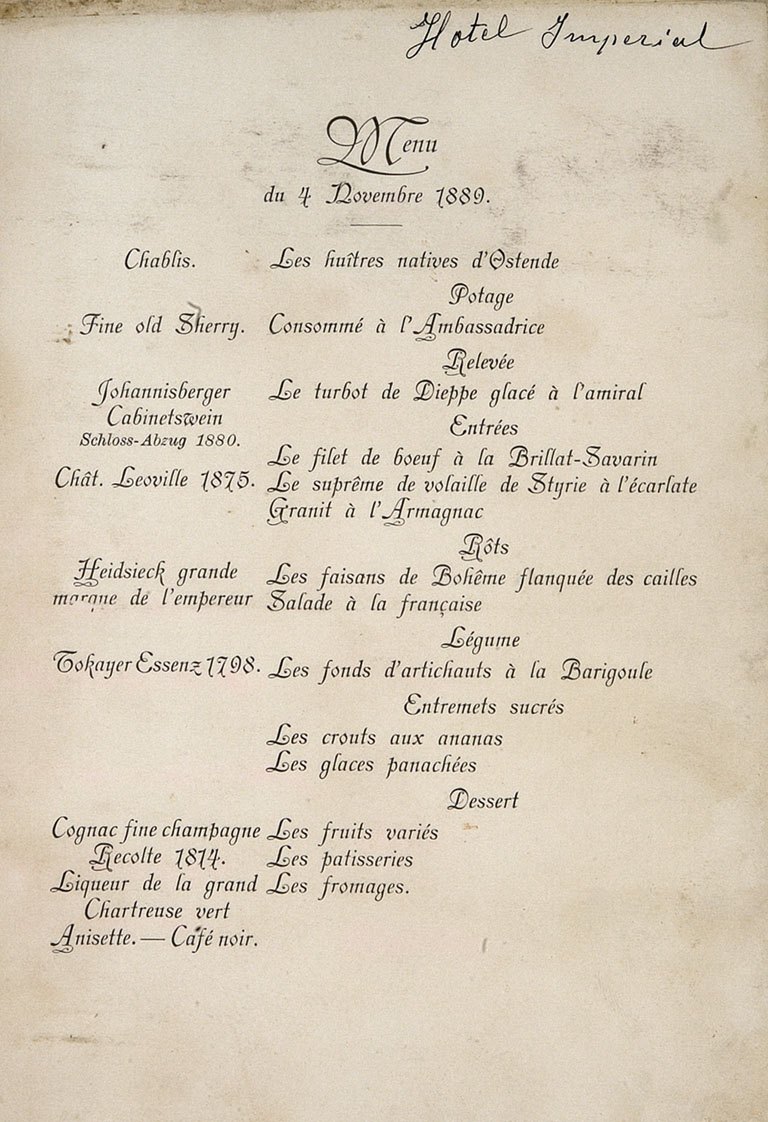 Hotel Imperial
Menu
du 4 Novembre 1889.
Chablis. Les huîtres natives d'Ostende
Potage
Fine old Sherry. Consommé à l'Ambassadrice
Relevée
Johannisberger Le turbot de Dieppe glacé à l'amiral
Cabinetswein
Entrées
Schloss-Abzug 1880.
Le filet de boeuf à la Brillat-Savarin
Chât. Leoville 1875. Le suprême de volaille de Styrie à l'écarlate
Granit à l'Armagnac
Rôts
Heidsieck grande Les faisans de Bohême flanquée des cailles
marque de l'empereur Salade à la française
Légume
Tokayer Essenz 1798. Les fonds d'artichauts à la Barigoule
Entremets sucrés
Les crouts aux ananas
Les glaces panachées
Dessert
Cognac fine champagne Les fruits variés
Recolte 1814. Les patisseries
Liqueur de la grand Les fromages.
Chartreuse vert
Anisette. — Café noir.